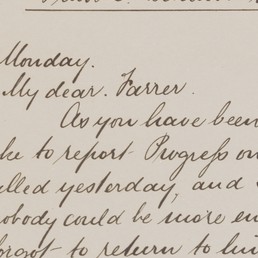 Monday.
My dear. Farrer.
As you have been
to report Progress on
yesterday, and
nobody could be more
forgot to return to him